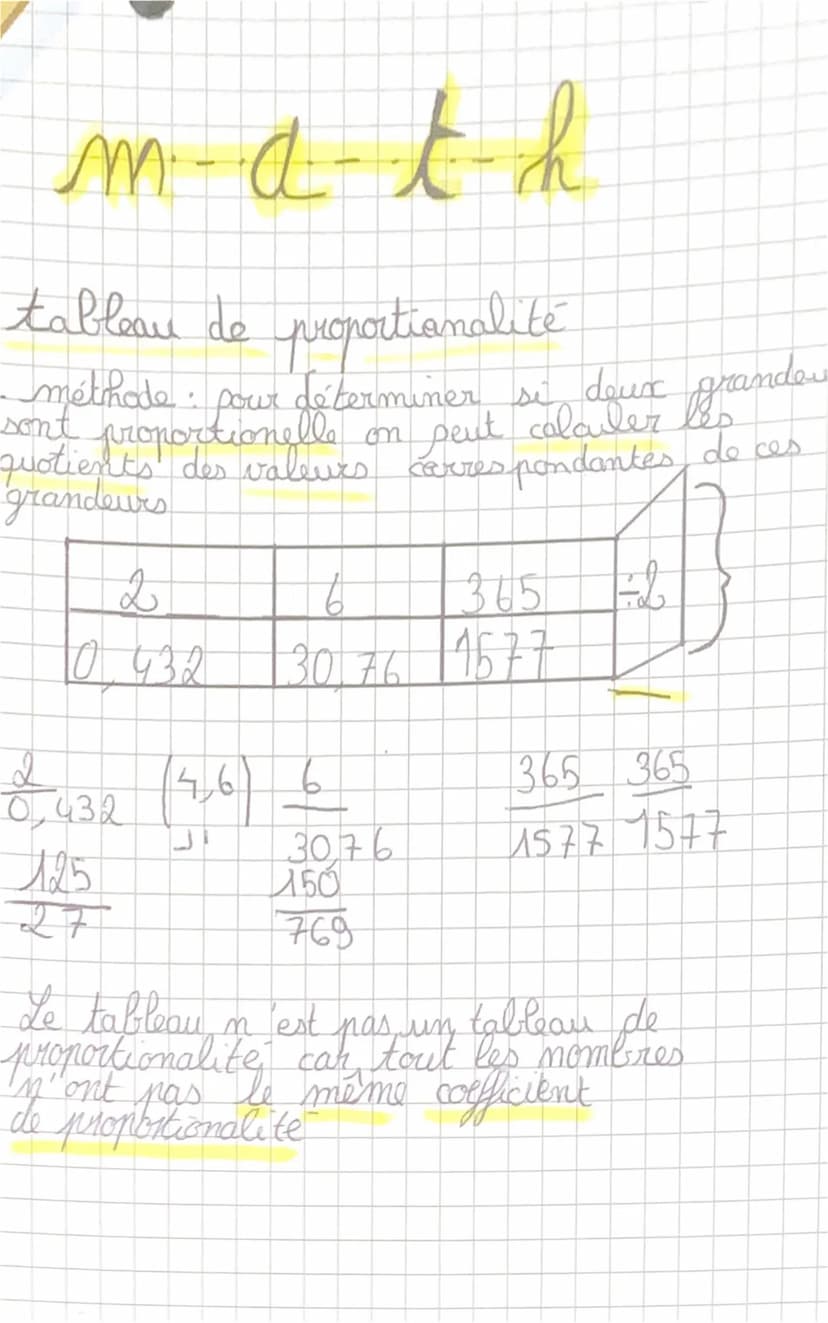 m-a-t-h
tableau de proportionalité
- méthode: pour déterminer si deux grandeu
sont proportionelle on peut calculer les
quotients des valeurs correspondantes de ces
grandeurs
2 6 365 ÷2
0,432 30,76 1577
2/0,432 (4,6) 6/30,76 365/1577 365/1577
125/27 150/769
Le tableau n'est pas un tableau de
proportionalité car tout les nombres
n'ont pas le même coefficient
de proportionalité